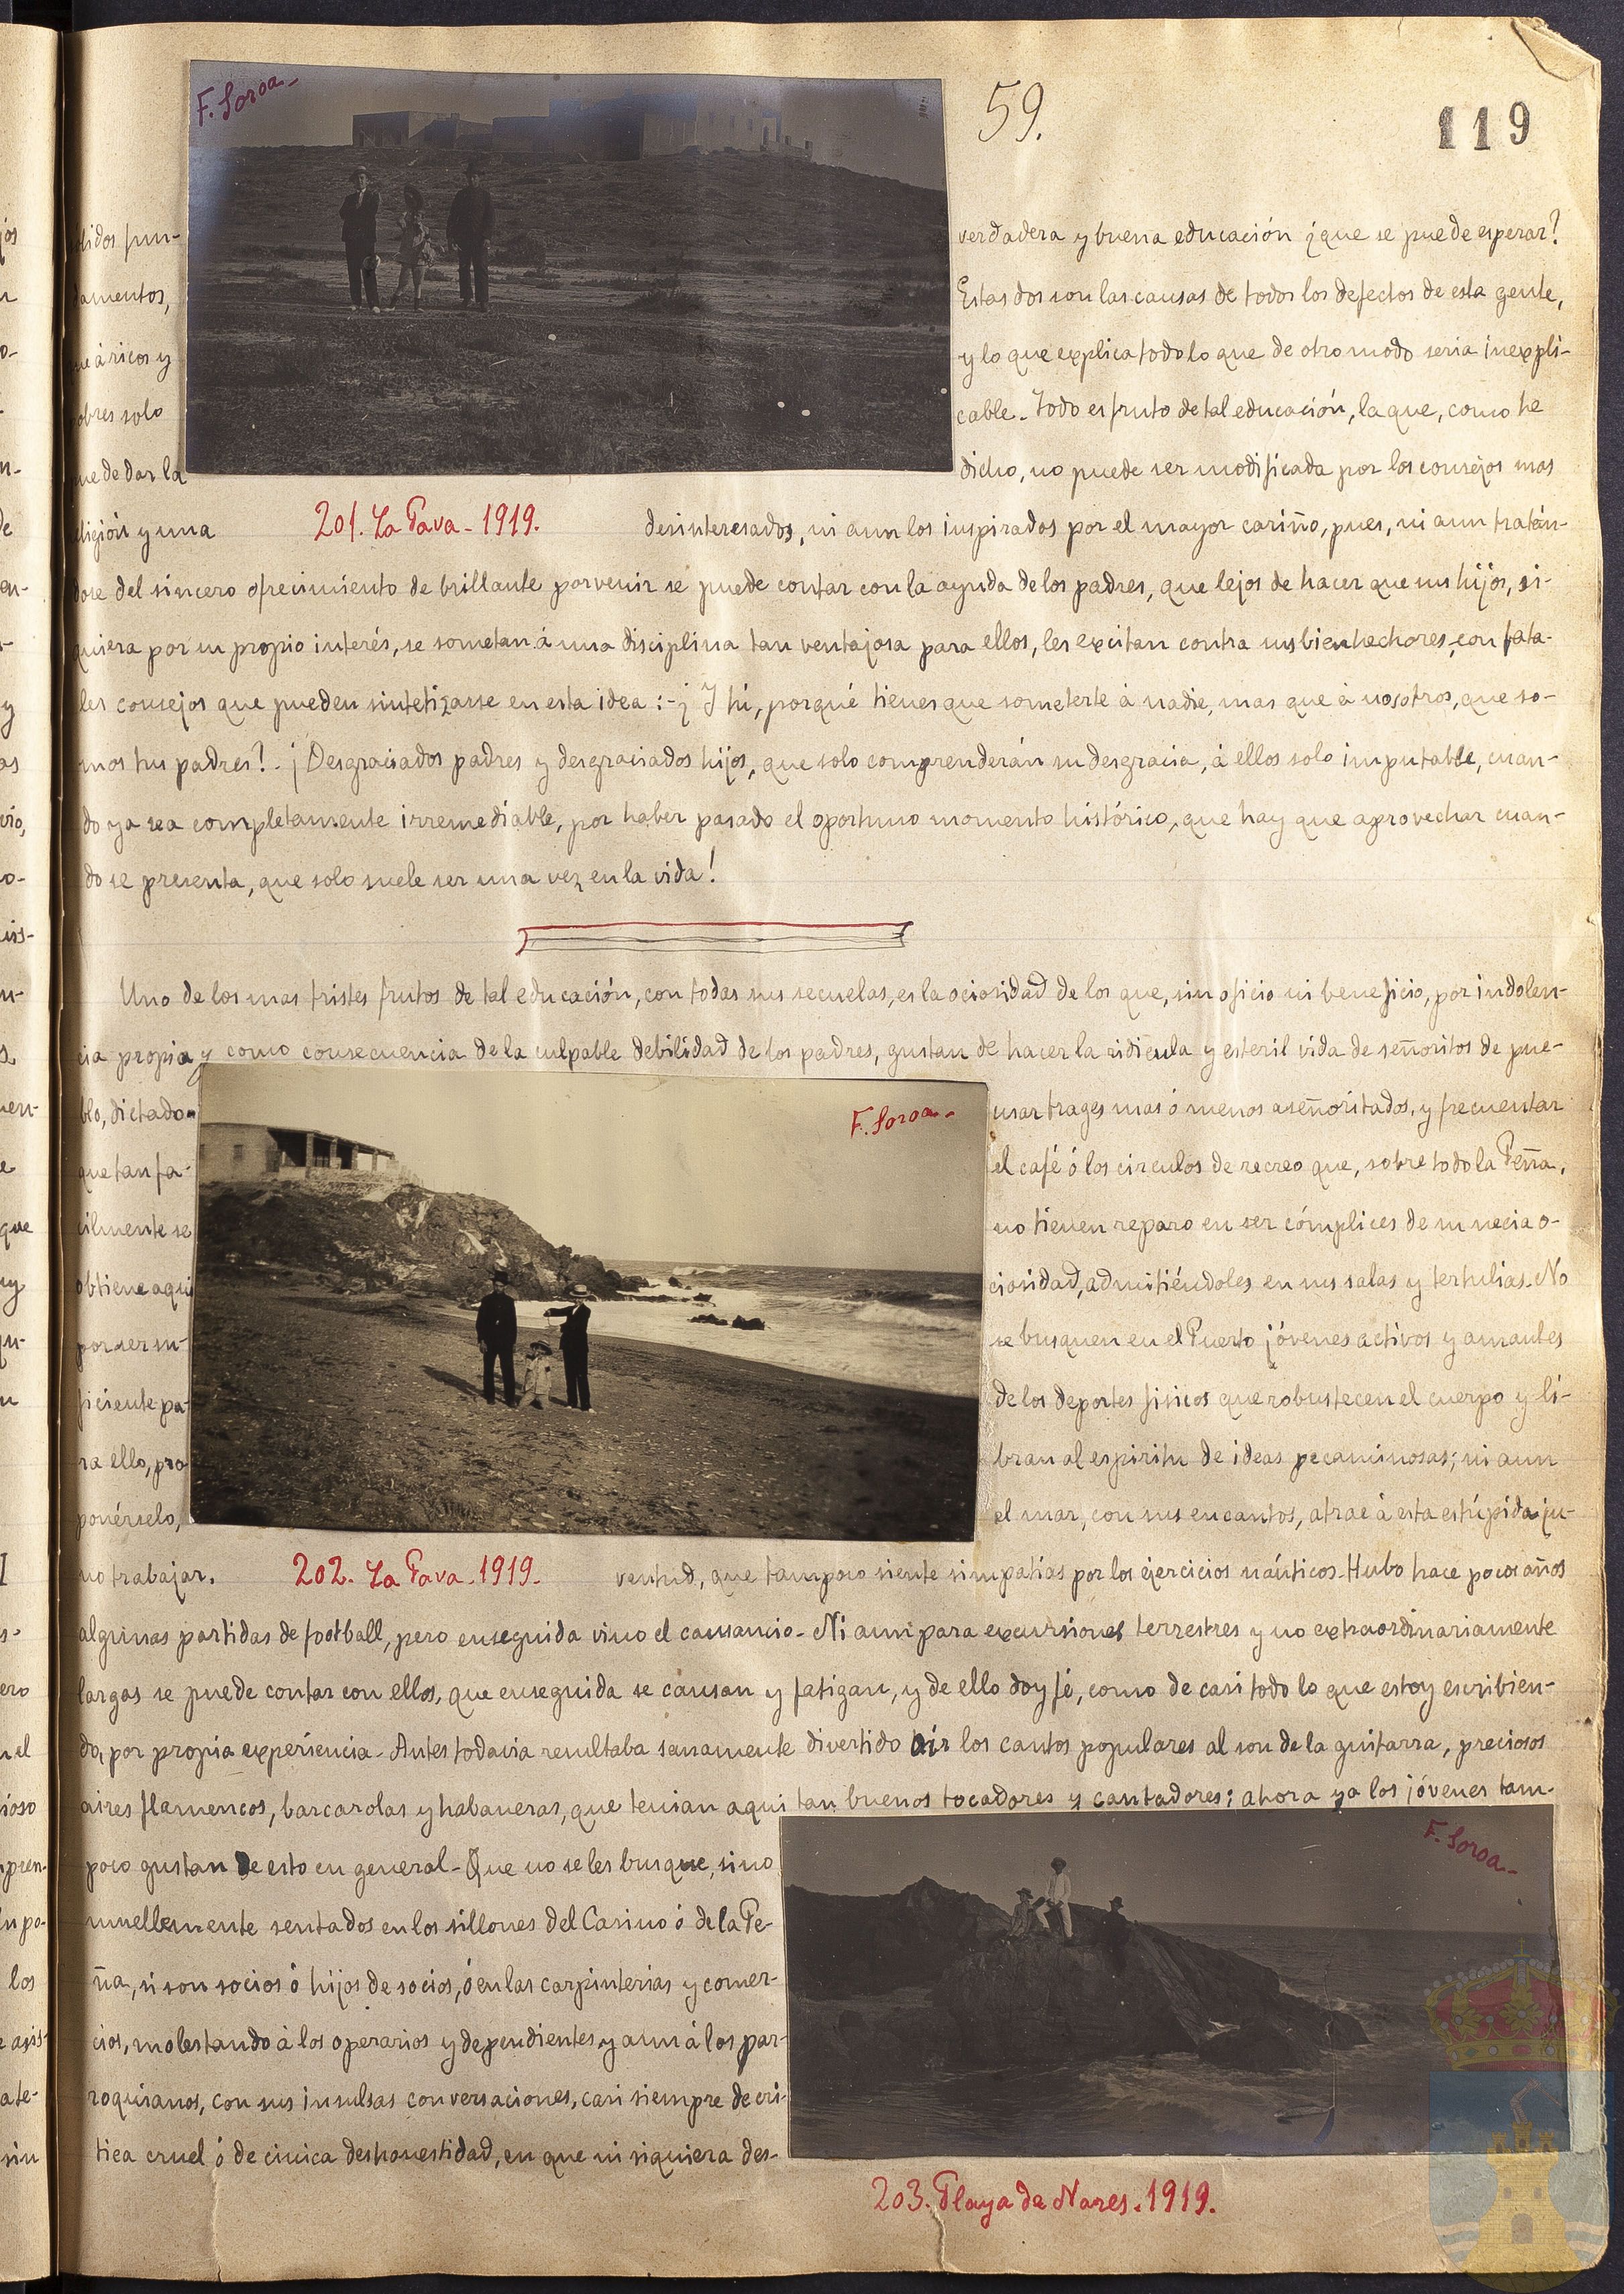 F. Soroa-
59.
119
lidos fun-
damentos,
que á ricos y
pobres solo
puede dar la
religión y una
verdadera y buena educación ¿que se puede esperar?
Estas dos son las causas de todos los defectos de esta gente,
y lo que explica todo lo que de otro modo seria inexpli-
cable. Todo es fruto de tal educación, la que, como he
dicho, no puede ser modificada por los consejos mas
201. La Pava - 1919.
desinteresados, ni aun los inspirados por el mayor cariño, pues, ni aun tratán-
dose del sincero ofrecimiento de brillante porvenir se puede contar con la ayuda de los padres, que lejos de hacer que sus hijos, si-
quiera por su propio interés, se sometan á una disciplina tan ventajosa para ellos, les excitan contra sus bienhechores, con fata-
les consejos que pueden sintetizarse en esta idea: -¿Y tú, porqué tienes que someterte á nadie, mas que á nosotros, que so-
mos tus padres?- ¡Desgraciados padres y desgraciados hijos, que solo comprenderán su desgracia, á ellos solo imputable, cuan-
do ya sea completamente irremediable, por haber pasado el oportuno momento histórico, que hay que aprovechar cuan-
do se presenta, que solo suele ser una vez en la vida!
Uno de los mas tristes frutos de tal educación, con todas sus secuelas, es la ociosidad de los que, sin oficio ni beneficio, por indolen-
cia propia y como consecuencia de la culpable debilidad de los padres, gustan de hacer la ridicula y esteril vida de señoritos de pue-
blo, dictado
que tan fa-
cilmente se
obtiene aqui
por ser su-
ficiente pa-
ra ello, pro
ponérselo,
no trabajar.
F. Soroa-
202. La Pava - 1919.
usar trages mas ó menos aseñoritados, y frecuentar
el café ó los circulos de recreo que, sobre todo la Peña,
no tienen reparo en ser cómplices de su necia o-
ciosidad, admitiéndoles en sus salas y tertulias. No
se busquen en el Puerto jóvenes activos y amantes
de los deportes fisicos que robustecen el cuerpo y li-
bran al espiritu de ideas pecaminosas; ni aun
el mar, con sus encantos, atrae á esta estúpida ju-
ventud, que tampoco siente simpatías por los ejercicios naúticos. Hubo hace pocos años
algunas partidas de football, pero enseguida vino el cansancio. Ni aun para excursiones terrestres y no extraordinariamente
largas se puede contar con ellos, que enseguida se cansan y fatigan, y de ello doy fé, como de casi todo lo que estoy escribien-
do, por propia experiencia. Antes todavia resultaba sanamente divertido oir los cantos populares al son de la guitarra, preciosos
aires flamencos, barcarolas y habaneras, que tenian aqui tan buenos tocadores y cantadores; ahora ya los jóvenes tam-
poco gustan de esto en general. Que no se les busque, sino
muellemente sentados en los sillones del Casino ó de la Pe-
ña, si son socios ó hijos de socios, ó en las carpinterias y comer-
cios, molestando á los operarios y dependientes y aun á los par-
roquianos, con sus insulsas conversaciones, casi siempre de cri-
tica cruel ó de cinica deshonestidad, en que ni siquiera des-
F. Soroa-
203. Playa de Nares. 1919.